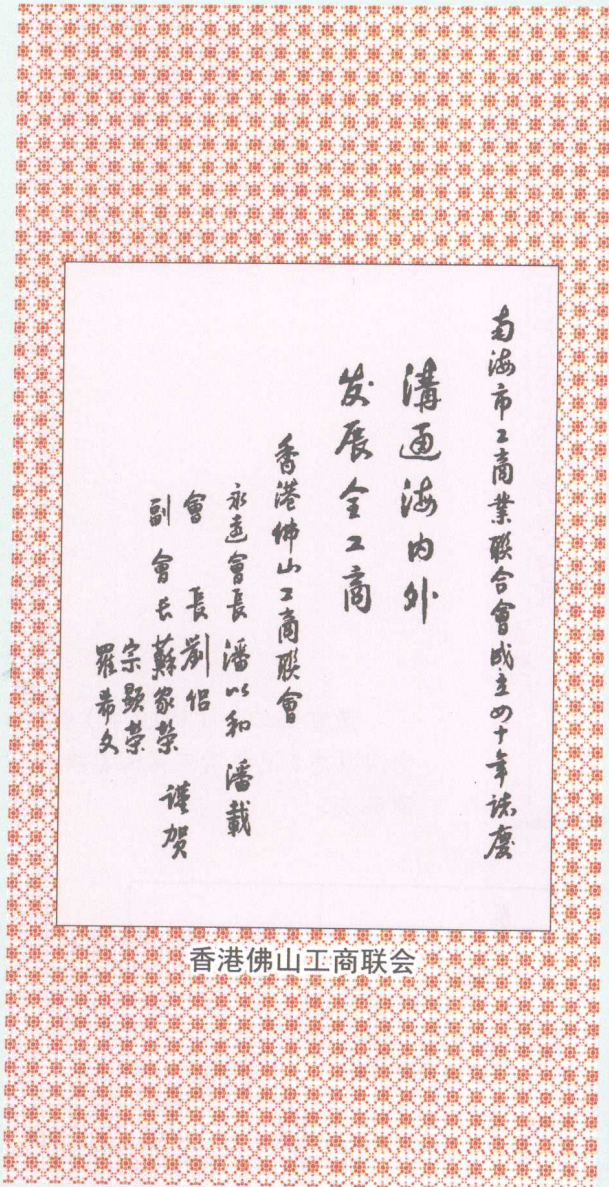 南海市工商業聯合會成立四十年誌慶
溝通海内外
发展全工商
香港佛山工商聯會
永遠會長 潘以和 潘載
會長 劉侶
副會长 蘇家榮
宗顯榮
羅希文
謹賀
香港佛山工商联会